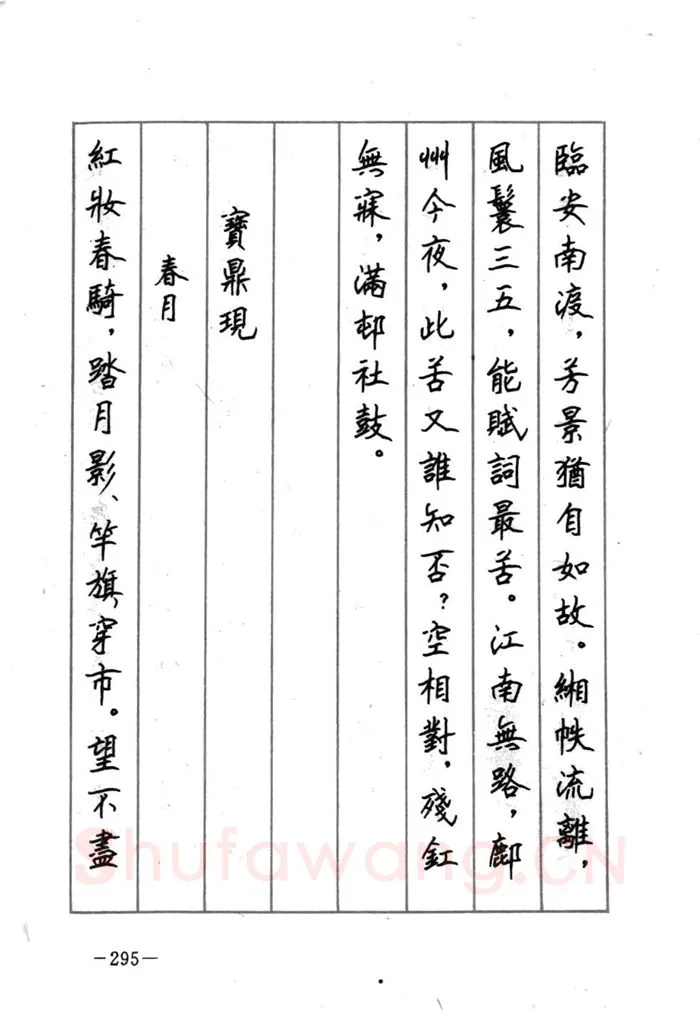 臨安南渡，芳景猶自如故。緗帙流離，
風鬟三五，能賦詞最苦。江南無路，鄜
州今夜，此苦又誰知否？空相對，殘釭
無寐，滿邨社鼓。
寶鼎現
春月
紅妝春騎，踏月影、竿旗穿市。望不盡
Shufawang.CN
—295—